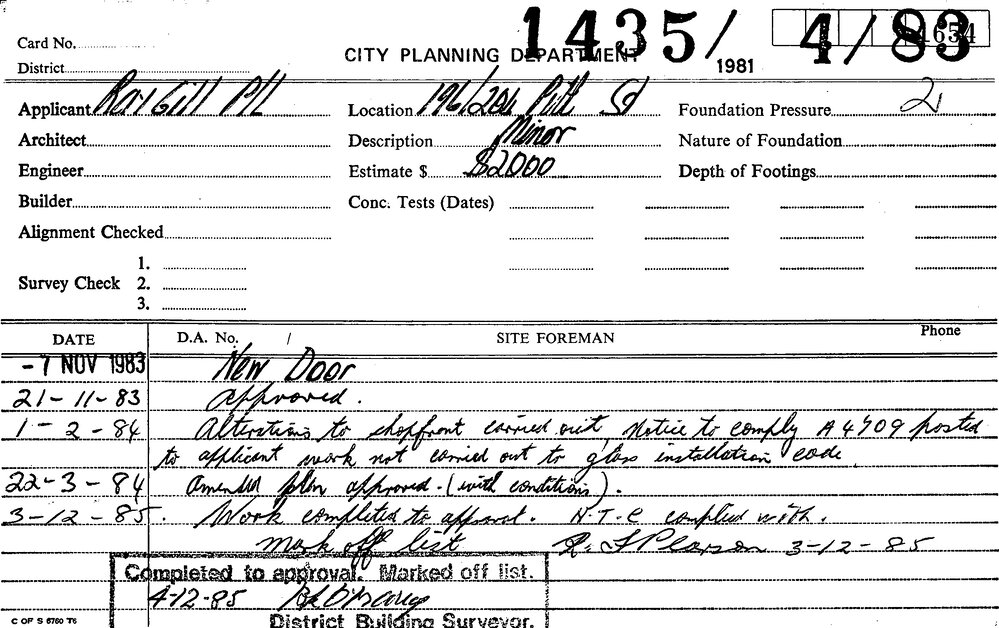 1435/ 4/83
Card No.
CITY PLANNING DEPARTMENT
1981
District
Applicant Ray Gill P/L Location 196/204 Pitt St Foundation Pressure 2
Architect Description Minor Nature of Foundation
Engineer Estimate $ $2000 Depth of Footings
Builder Conc. Tests (Dates)
Alignment Checked
1.
Survey Check 2.
3.
DATE D.A. No. / SITE FOREMAN Phone
- 7 NOV 1983 New Door
21-11-83 Approved.
1-2-84 Alterations to shopfront carried out, Notice to comply A4709 posted
to applicant work not carried out to glass installation code.
22-3-84 Amended plan approved. (with conditions).
3-12-85. Work completed to approval. N.T.C complied with.
Mark off list R. J Pearson 3-12-85
Completed to approval. Marked off list.
4-12-85
District Building Surveyor.
C OF S 6760 T6